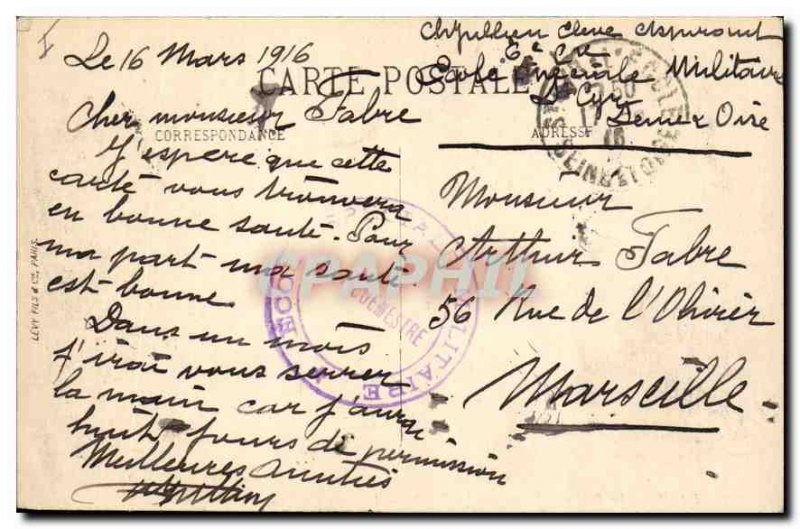 Le 16 Mars 1916
CARTE POSTALE
CORRESPONDANCE
Cher monsieur Fabre
J'espère que cette
carte vous trouvera
en bonne santé. Pour
ma part ma santé
est bonne
Dans un mois
j'irai vous serrer
la main car j'aurai
huit jours de permission
Meilleures amitiés
élève Aspirant
6e Cie
Ecole Spéciale Militaire
St Cyr
Seine Oise
ADRESSE
Monsieur
Arthur Fabre
56 Rue de l'Olivier
Marseille
LEVY FILS & Cie, PARIS.
CPAPHIL